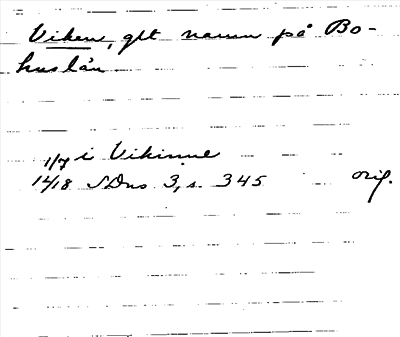 Viken, glt namn på Bo-
huslän
1/7 i Vikinne
1418 SDns 3, s. 345 orig.